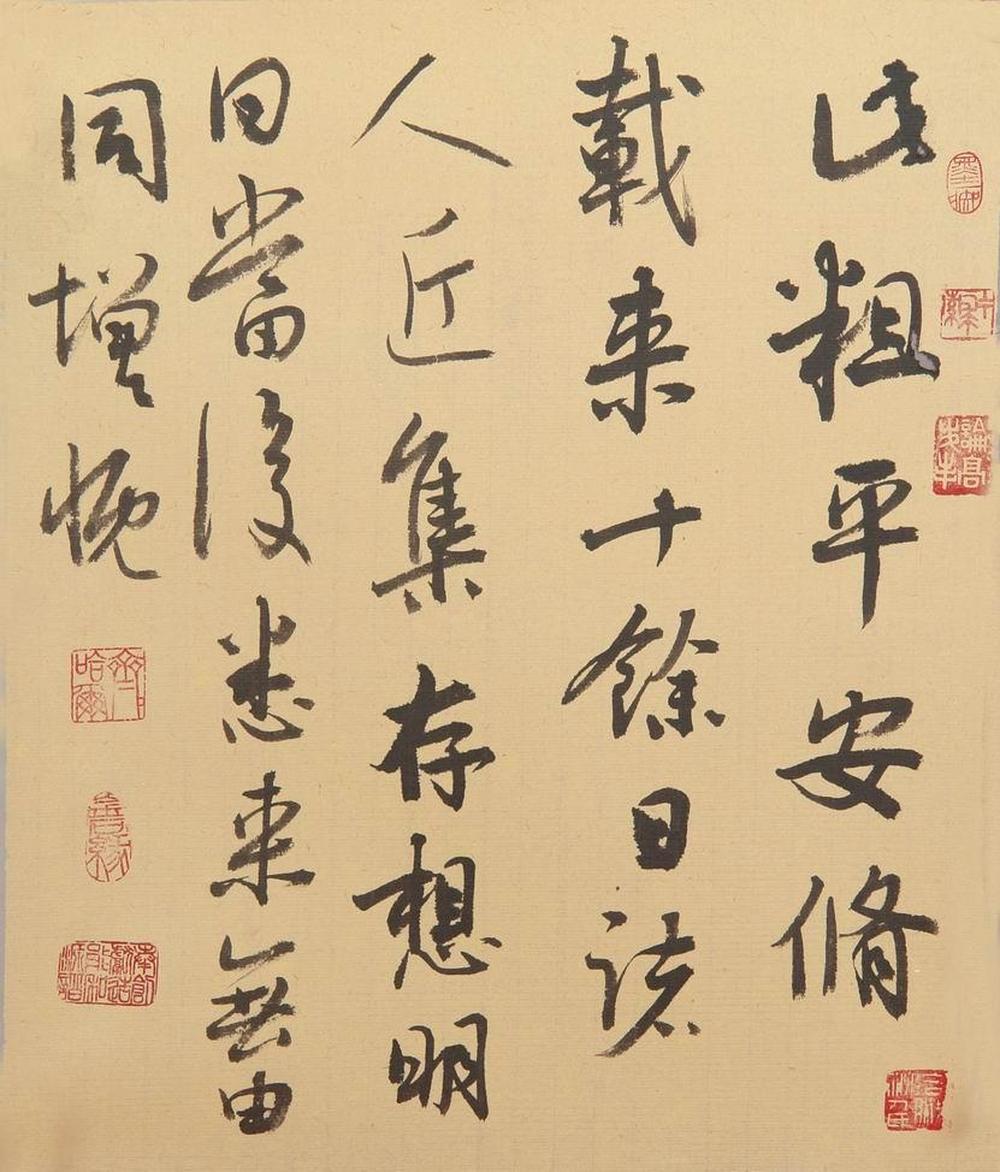 此粗平安脩
載来十餘日諸
人近集存想明
日當復悉来無由
同增慨